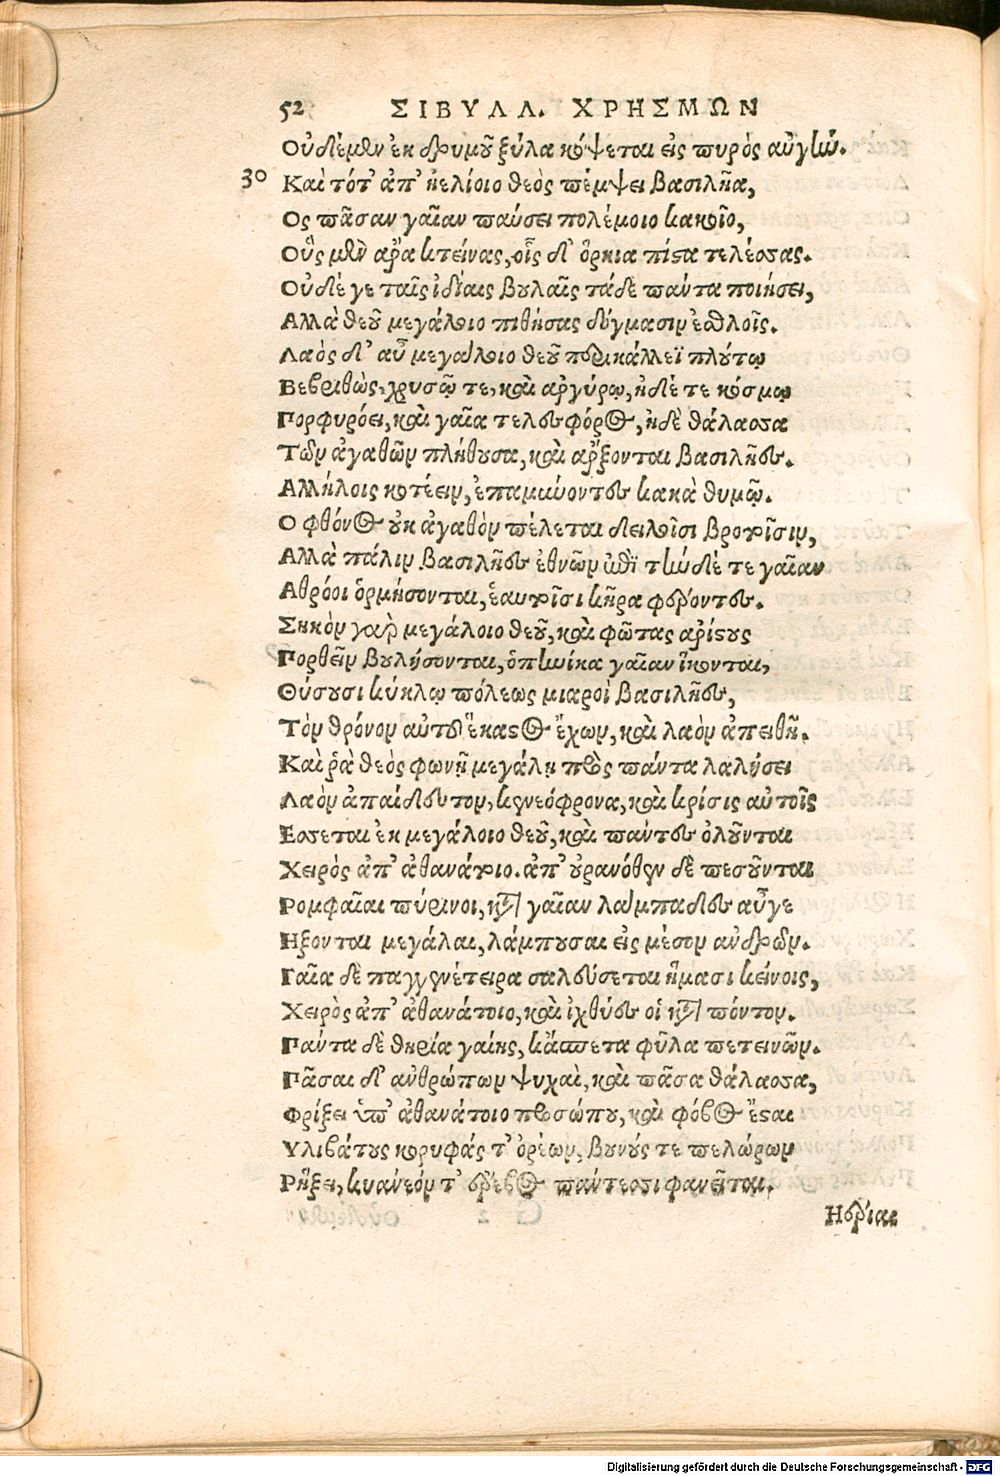 52 ΣΙΒΥΛΛ. ΧΡΗΣΜΩΝ
Οὐδὲ μὲν ἐκ δρυμοῦ ξύλα κόψεται εἰς πυρὸς αὐγὴν.
30 Καὶ τότ' ἀπ' ἠελίοιο θεὸς πέμψει βασιλῆα,
Ος πᾶσαν γαῖαν παύσει πολέμοιο κακοῖο,
Οὓς μὲν ἄρα κτείνας, οἷς δ' ὅρκια πιστὰ τελέσσας.
Οὐδέ γε ταῖς ἰδίαις βουλαῖς τάδε πάντα ποιήσει,
Αλλὰ θεοῦ μεγάλοιο πιθήσας δόγμασιν ἐσθλοῖς.
Λαὸς δ' αὖ μεγάλοιο θεοῦ περικάλλεϊ πλούτῳ
Βεβριθὼς, χρυσῷ τε, καὶ ἀργύρῳ, ἠδέ τε κόσμῳ
Πορφυρόει, καὶ γαῖα τελεσφόρος, ἠδὲ θάλασσα
Τῶν ἀγαθῶν πλήθουσα, καὶ ἄρξονται βασιλῆες.
Αλλήλοις κοτέειν, ἐπαμύνοντες κακὰ θυμῷ.
Ο φθόνος οὐκ ἀγαθὸν πέλεται δειλοῖσι βροτοῖσιν,
Αλλὰ πάλιν βασιλῆες ἐθνῶν ἐπὶ τὴνδέ τε γαῖαν
Αθρόοι ὁρμήσονται, ἑαυτοῖσι κῆρα φέροντες.
Σηκὸν γὰρ μεγάλοιο θεοῦ, καὶ φῶτας ἀρίστους
Πορθεῖν βουλήσονται, ὁπηνίκα γαῖαν ἵκονται,
Θύσουσι κύκλῳ πόλεως μιαροὶ βασιλῆες,
Τὸν θρόνον αὐτοῦ ἕκαστος ἔχων, καὶ λαὸν ἀπειθῆ.
Καὶ ῥὰ θεὸς φωνῇ μεγάλῃ πρὸς πάντα λαλήσει
Λαὸν ἀπαίδευτον, κενεόφρονα, καὶ κρίσις αὐτοῖς
Εσσεται ἐκ μεγάλοιο θεοῦ, καὶ πάντες ὀλοῦνται
Χειρὸς ἀπ' ἀθανάτοιο. ἀπ' οὐρανόθεν δὲ πεσοῦνται
Ρομφαῖαι πύρινοι, κατὰ γαῖαν λαμπάδες αὖγε
Ηξονται μεγάλαι, λάμπουσαι εἰς μέσον ἀνδρῶν.
Γαῖα δὲ παγγενέτειρα σαλεύσεται ἤμασι κείνοις,
Χειρὸς ἀπ' ἀθανάτοιο, καὶ ἰχθύες οἱ κατὰ πόντον.
Πάντα δὲ θηρία γαίης, κἄσπετα φῦλα πετεινῶν.
Πᾶσαι δ' ἀνθρώπων ψυχαὶ, καὶ πᾶσα θάλασσα,
Φρίξει ὑπ' ἀθανάτοιο προσώπου, καὶ φόβος ἔσται
Υλιβάτους κορυφάς τ' ὀρέων, βουνούς τε πελώρων
Ρήξει, κυανεόν τ' ἔρεβος πάντεσσι φανεῖται.
Ηέριαι
Digitalisierung gefördert durch die Deutsche Forschungsgemeinschaft - DFG